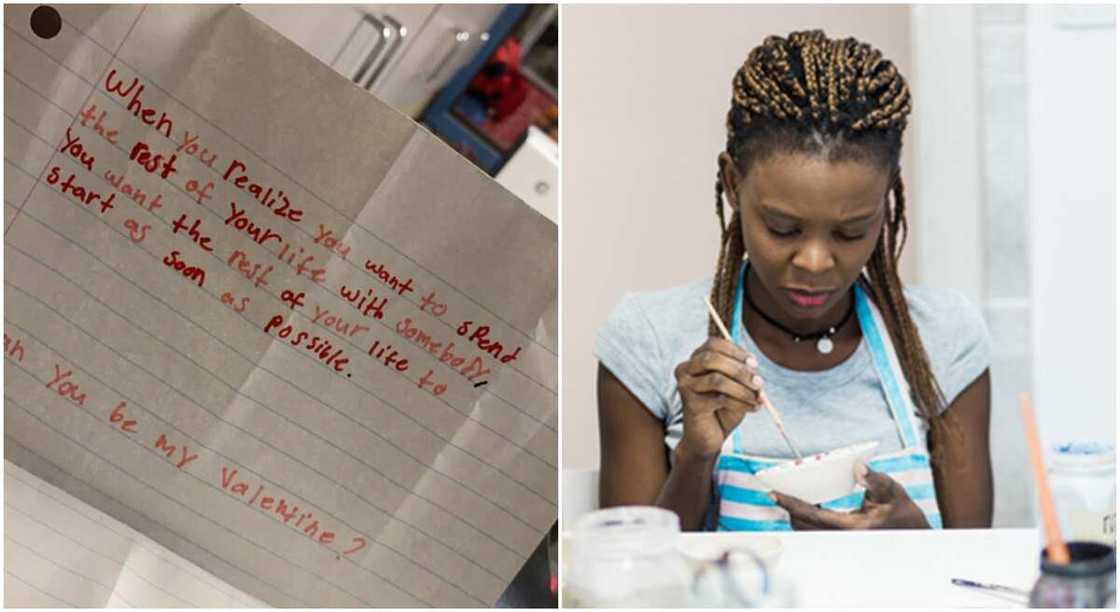 When you realize you want to spend
the rest of your life with somebody,
You want the rest of your life to
start as soon as possible.
you be my valentine?